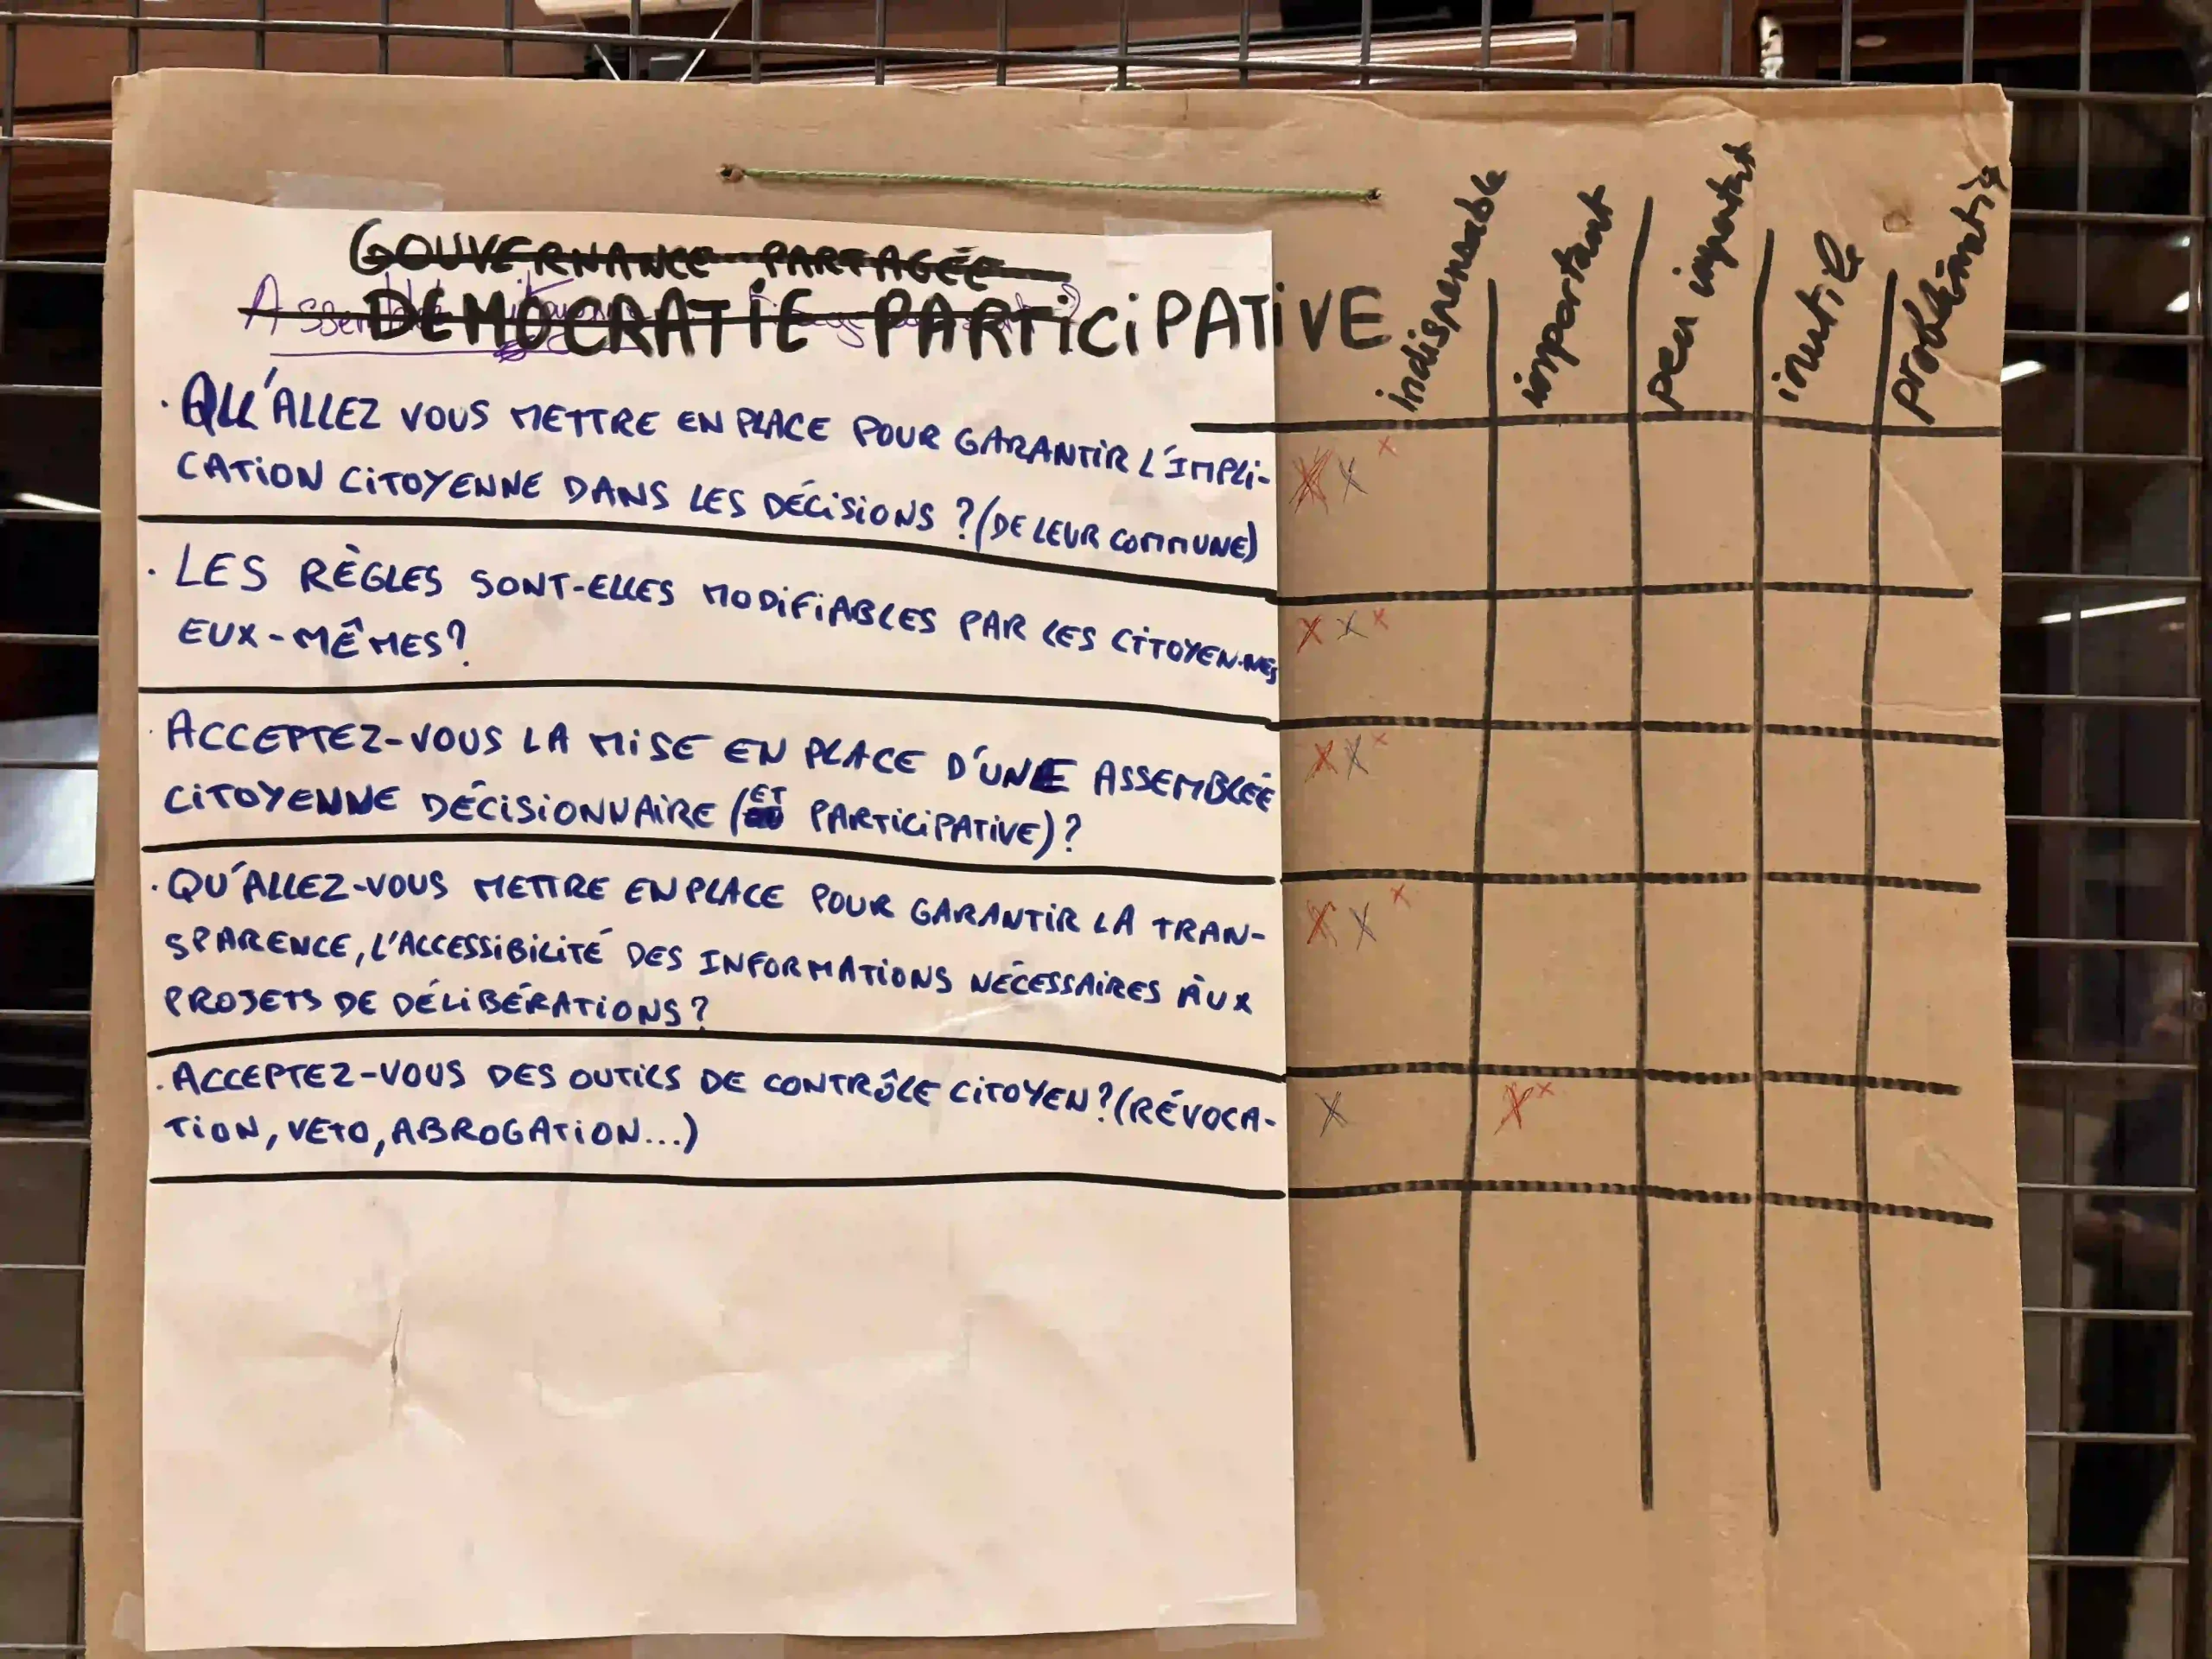 GOUVERNANCE PARTAGÉE
DÉMOCRATIE PARTICIPATIVE
indispensable
important
peu important
inutile
problématiq
· QU'ALLEZ VOUS METTRE EN PLACE POUR GARANTIR L'IMPLI-
CATION CITOYENNE DANS LES DÉCISIONS ? (DE LEUR COMMUNE)
· LES RÈGLES SONT-ELLES MODIFIABLES PAR LES CITOYEN·NES
EUX-MÊMES?
· ACCEPTEZ-VOUS LA MISE EN PLACE D'UNE ASSEMBLÉE
CITOYENNE DÉCISIONNAIRE (ET PARTICIPATIVE)?
· QU'ALLEZ-VOUS METTRE EN PLACE POUR GARANTIR LA TRAN-
SPARENCE, L'ACCESSIBILITÉ DES INFORMATIONS NÉCESSAIRES AUX
PROJETS DE DÉLIBÉRATIONS?
· ACCEPTEZ-VOUS DES OUTILS DE CONTRÔLE CITOYEN? (RÉVOCA-
TION, VETO, ABROGATION...)